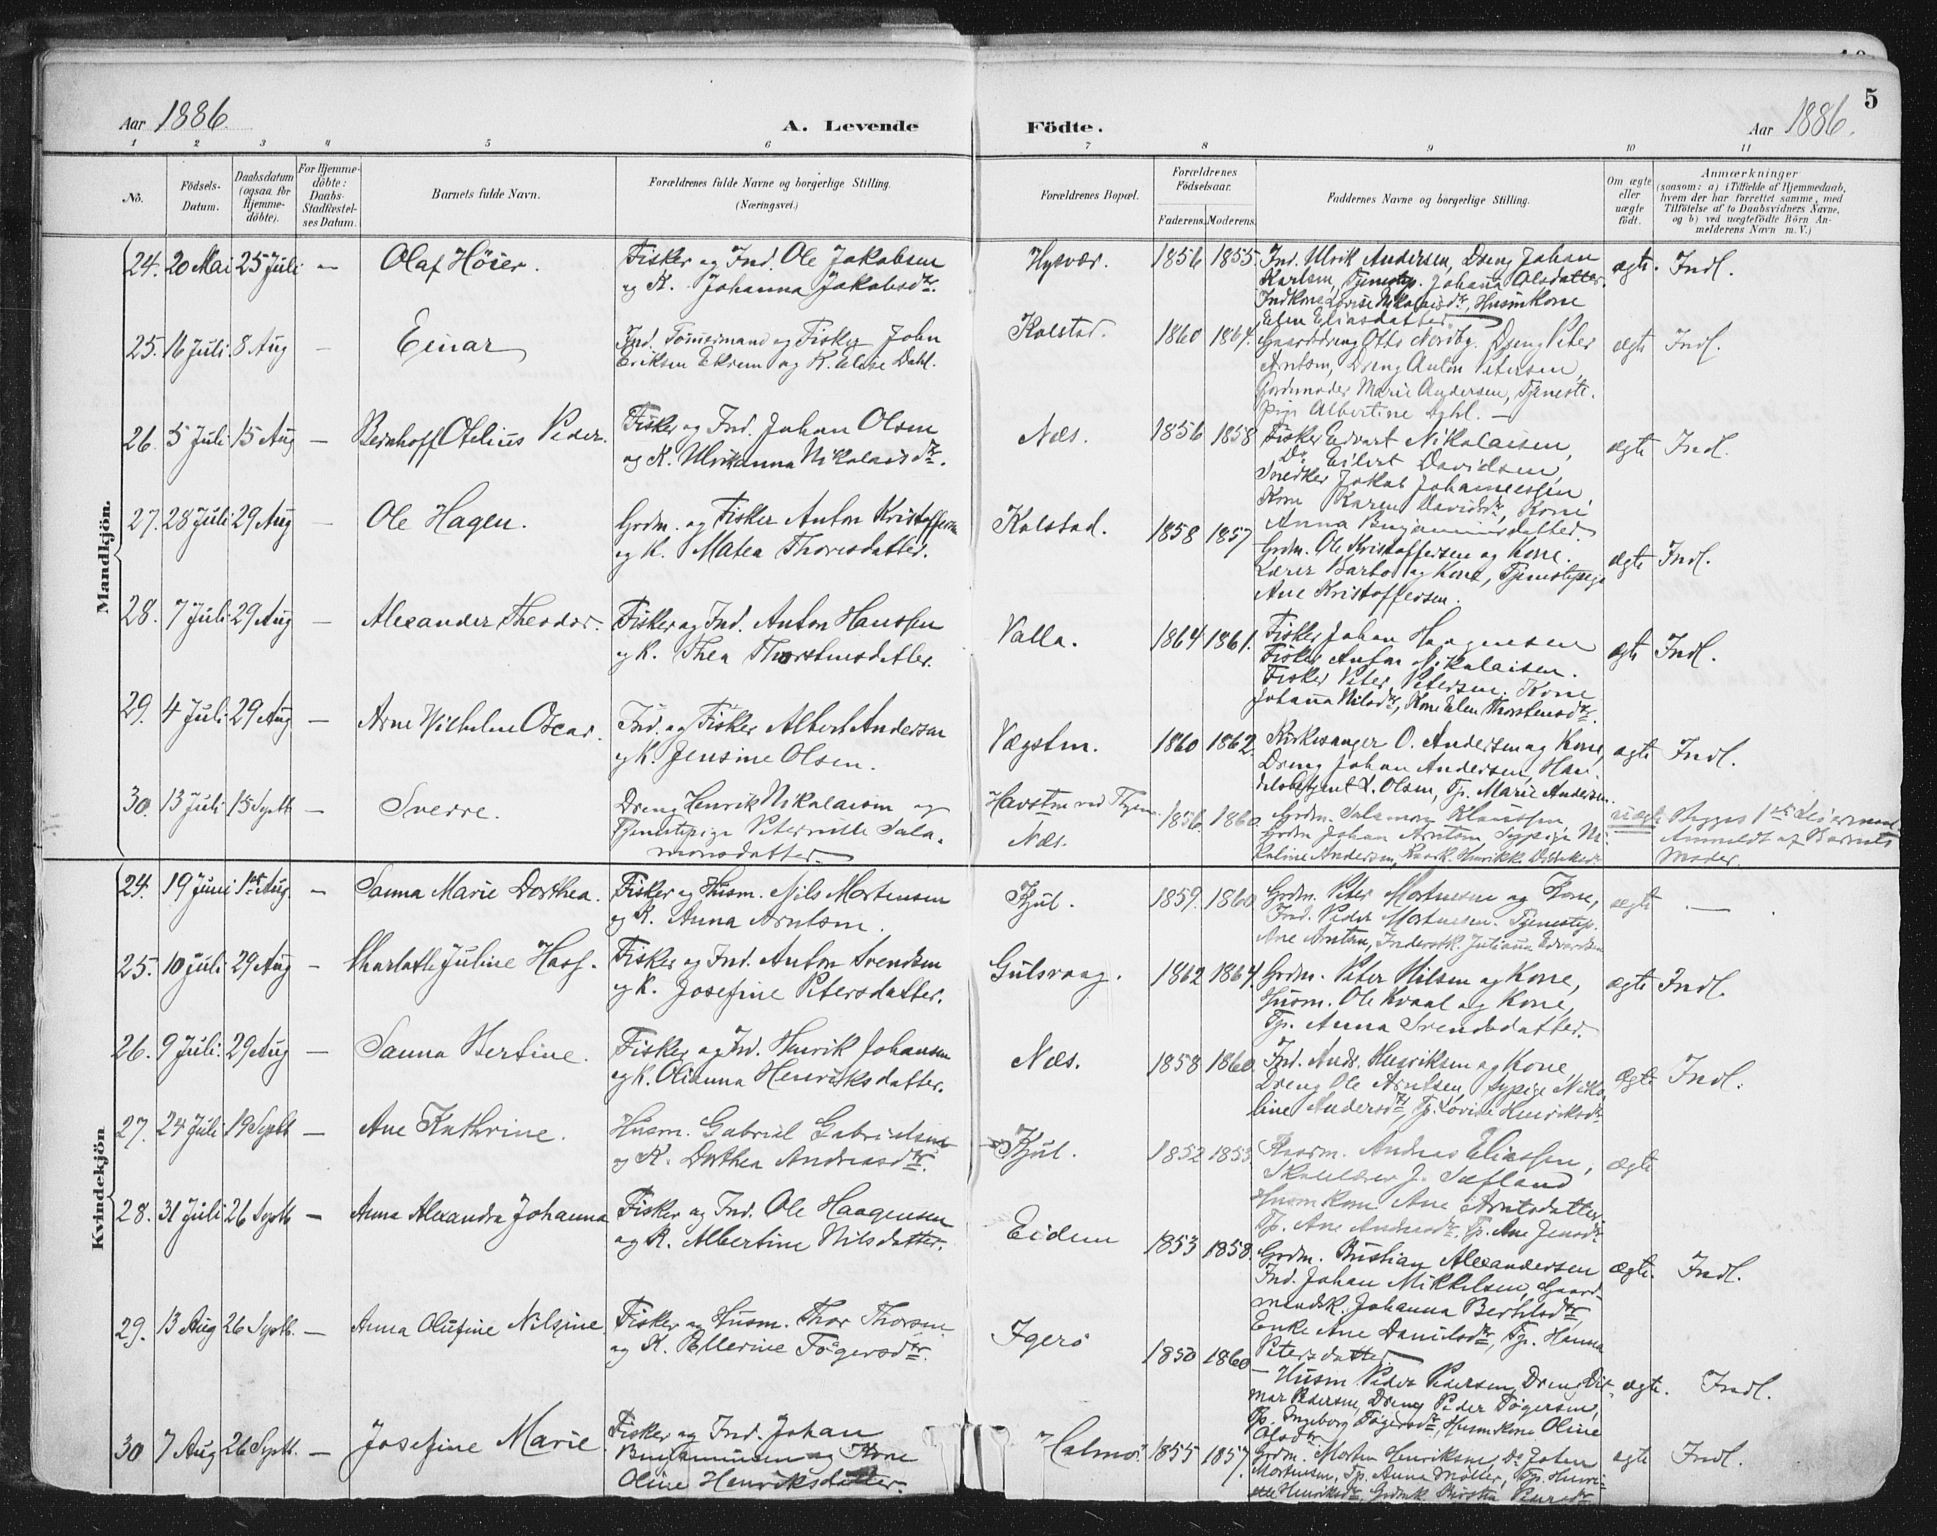 5
Aar 1886. A. Levende Födte. Aar 1886.
1 2 3 4 5 6 7 8 9 10 11
No.
Födsels-Datum.
Daabsdatum (ogsaa for Hjemme-döbte).
For Hjemme-döbte: Daabs-Stadfæstel-ses Datum.
Barnets fulde Navn.
Forældrenes fulde Navne og borgerlige Stilling.
(Næringsvei.)
Forældrenes Bopæl.
Forældrenes Födselsaar.
Faderens. Moderens.
Faddernes Navne og borgerlige Stilling.
Om ægte eller uægte födt.
Anmærkninger
(saasom: a) i Tilfælde af Hjemmedaab,
hvem der har forrettet samme, med
Tilföielse af to Daabsvidners Navne,
og b) ved uegtefödte Börn An-
melderens Navn m. V.)
Mandkjön.
24. 20 Mai 25 Juli – Olaf Höier. Fisker og Ind. Ole Jakobsen
og K. Johanna Jakobsdr.
Hysvær. 1856 1855. Ind. Ulrik Andersen, Dreng Johan
Karlsen, Tjenestep. Johana Olsdatter.
Indkone Lovise Nikolaisdr, Husmkone
Elen Eliasdatter
ægte. Indl.
25. 16 Juli 8 Aug – Einar Ind. Tömmermand og Fisker John
Eriksen Ekrem og K. Elise Dahl.
Kolstad. 1860 1864. Gaarddreng Otto Nordby. Dreng Peter
Arntsen, Dreng Anton Petersen,
Gordemoder Marie Andersen, Tjeneste-
pige Albertine Dahl.
ægte Indl.
26. 5 Juli 15 Aug – Bernhoff Otelius Peder. Fisker og Ind. Johan Olsen
og K. Ulrikanna Nikolaisdr.
Næs. 1856 1858 Fisker Edvart Nikolaisen,
Do Eilert Davidsen,
Snedker Jakob Johannessen,
Kone Karen Davidsdr, Kone
Anna Benjaminsdatter.
ægte Indl.
27. 28 Juli 29 Aug – Ole Hagen. Grdm. og Fisker Anton Kristoffersen
og K. Matea Thorisdatter.
Kolstad. 1858 1857 Grdm. Ole Kristoffersen og Kone.
Lærer Barbo og Kone, Tjenestepige
Ane Kristoffersen.
ægte Indl.
28. 7 Juli 29 Aug – Alexander Theodor. Fisker og Ind. Anton Hanssen
og K. Thea Thorstensdatter.
Valla. 1864 1861. Fisker Johan Haagensen
Fisker Anton Nikolaisen.
Fisker Peter Petersen. Kone
Johana Nilsdr, Kone Elen Thorstensdr.
ægte Indl.
29. 4 Juli 29 Aug – Arne Wilhelm Oscar. Ind. og Fisker Albert Andersen
og K. Jensine Olsen.
Vægsten. 1860 1862. Kirkesanger O. Andersen og Kone,
Dreng Johan Andersen, Han-
delsbetjent L. Olsen, Tp. Marie Andersen.
ægte Indl.
30. 13 Juli 15 Septb – Sverre. Dreng Henrik Nikolaisen og
Tjenestepige Peternille Salo-
monsdatter.
Havsten ved
Næs.
1856. 1860. Grdm. Salomon Klaussen
Grdm Johan Arntsen, Sypige Ni-
koline Andersen, Henrikke
uægte Begges 1ste Leiermaal
Anmeldt af Barnets
Moder.
Kvindekjön
24. 19 Juni 1ste Aug. – Sanna Marie Dorthea. Fisker og Husm. Nils Mortensen
og K. Anna Arntsen.
Kjul. 1859. 1860 Grdm. Peter Mortensen og Kone,
Ind. Peder Mortensen. Tjenestep.
Ane Arntsen, Juliana Edvardsen
ægte –
25. 10 Juli 29 Aug – Charlotte Juline Hass. Fisker og Ind. Anton Svendsen
og K. Josefine Petersdatter.
Gulsvaag. 1862 1864. Grdm. Peter Nilsen og Kone,
Husm. Ole Kvaal og Kone,
Tp. Anna Svendsdatter.
ægte Indl.
26. 9 Juli. 29 Aug – Sanna Bertine. Fisker og Ind. Henrik Johansen
og K. Olianna Henriksdatter.
Næs. 1858 1860. Ind. Ands. Henriksen og Kone,
Dreng Ole Arntsen, Sypige Niko-
line Andersdr, Tp. Lovise Henriksdr
Ægte Indl.
27. 24 Juli 19 Septb – Ane Kathrine. Husm. Gabriel Gabrielsen
og K. Dorthea Andreasdr.
Kjul. 1852 1853. Andreas Eliassen,
Skolelærer J. Sæfland
Husmkone Ane Arntsdatter,
Tp. Ane Andreasdr, Tp. Ane Jensdr
ægte
28. 31 Juli 26 Septb – Anna Alexandra Johanna Fisker og Ind. Ole Haagensen
og K. Albertine Nilsdatter.
Eidem 1853 1858. Grdm. Bastian Alexandersen
Ind. Johan Mikkelsen, Gaard-
mandsk. Johanna Bertilsdr,
Enke Ane Danielsdr, Tp. Hanna
Petersdatter
ægte. Indl.
29. 13 Aug 26 Septb. – Anna Olufine Nilsine. Fisker og Husm. Thor Thorsen
og K. Pellerine Fögersdr.
Igerö 1850 1860 – Husm Peder Pedersen, Dreng Dit-
mar Pedersen, Dreng Peder Fögersen,
Tp. Ingeborg Fögersdr, Husmkone Oline
Olsdr
ægte. Indl.
30 7 Aug 26 Septb. – Josefine Marie Fisker og Ind. Johan
Benjaminsen og Kone
Oline Henriksdatter.
Holmö. 1855 1857. Grdm. Morten Henriksen, Do Johan
Mortensen, Tp. Anna Möller, Tp. Henri-
ette Henriksdr, Grdmk. Kirsten Pedersdr
ægte Indl.